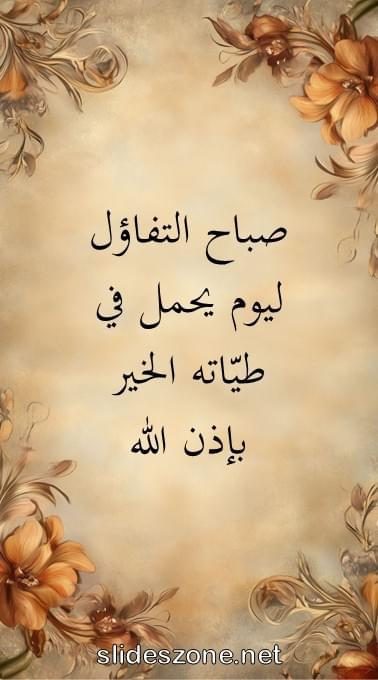 صباح التفاؤل
ليوم يحمل في
طيّاته الخير
بإذن الله
slideszone.net